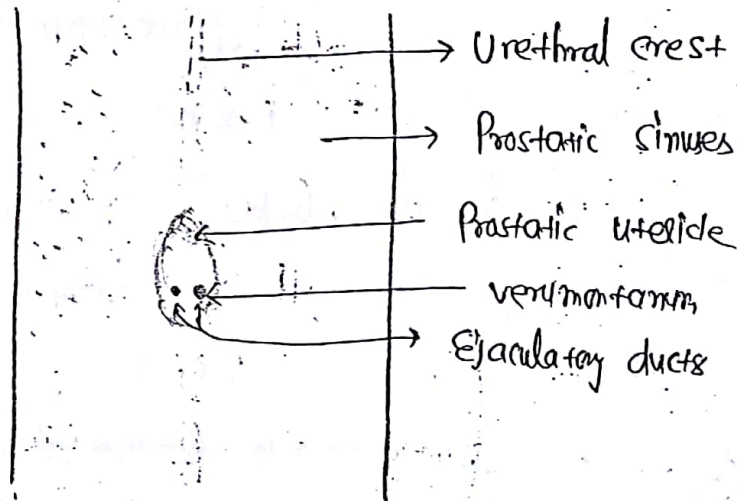 Urethral crest
Prostatic Sinuses
Prostatic utelicle
verumontanum
Ejaculatory ducts